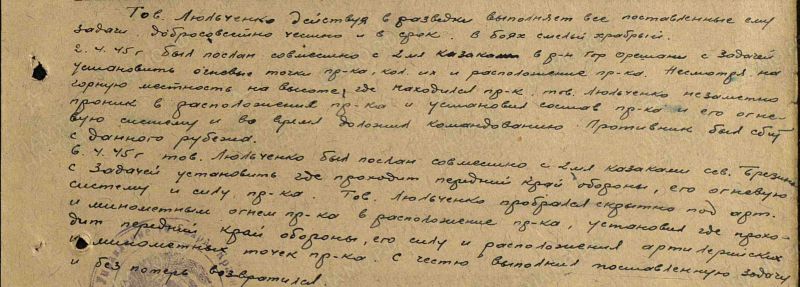 Тов. Люльченко действуя в разведки выполняет все поставленные ему
задачи добросовестно честно и в срок. В боях смелый храбрый.
2.4.45 г был послан совместно с 2мя казаками в р-н гор Орешани с задачей
установить огневые точки пр-ка, кол. их и расположение пр-ка. Несмотря на
горную местность на высоте, где находился пр-к. тов. Люльченко незаметно
проник в расположения пр-ка и установил состав пр-ка и его огне-
вую систему и во время доложил командованию. Противник был сбит
с данного рубежа.
6.4.45 г тов. Люльченко был послан совместно с 2мя казаками сев.
с задачей установить где проходит передний край обороны, его огневую
систему и силу пр-ка. Тов. Люльченко пробрался скрытно под арт.
и минометным огнем пр-ка в расположение пр-ка, установил где прохо-
дит передний край обороны, его силу и расположения артилерийских
и минометных точек пр-ка. С честью выполнил поставленную задачу
и без потерь возвратился.